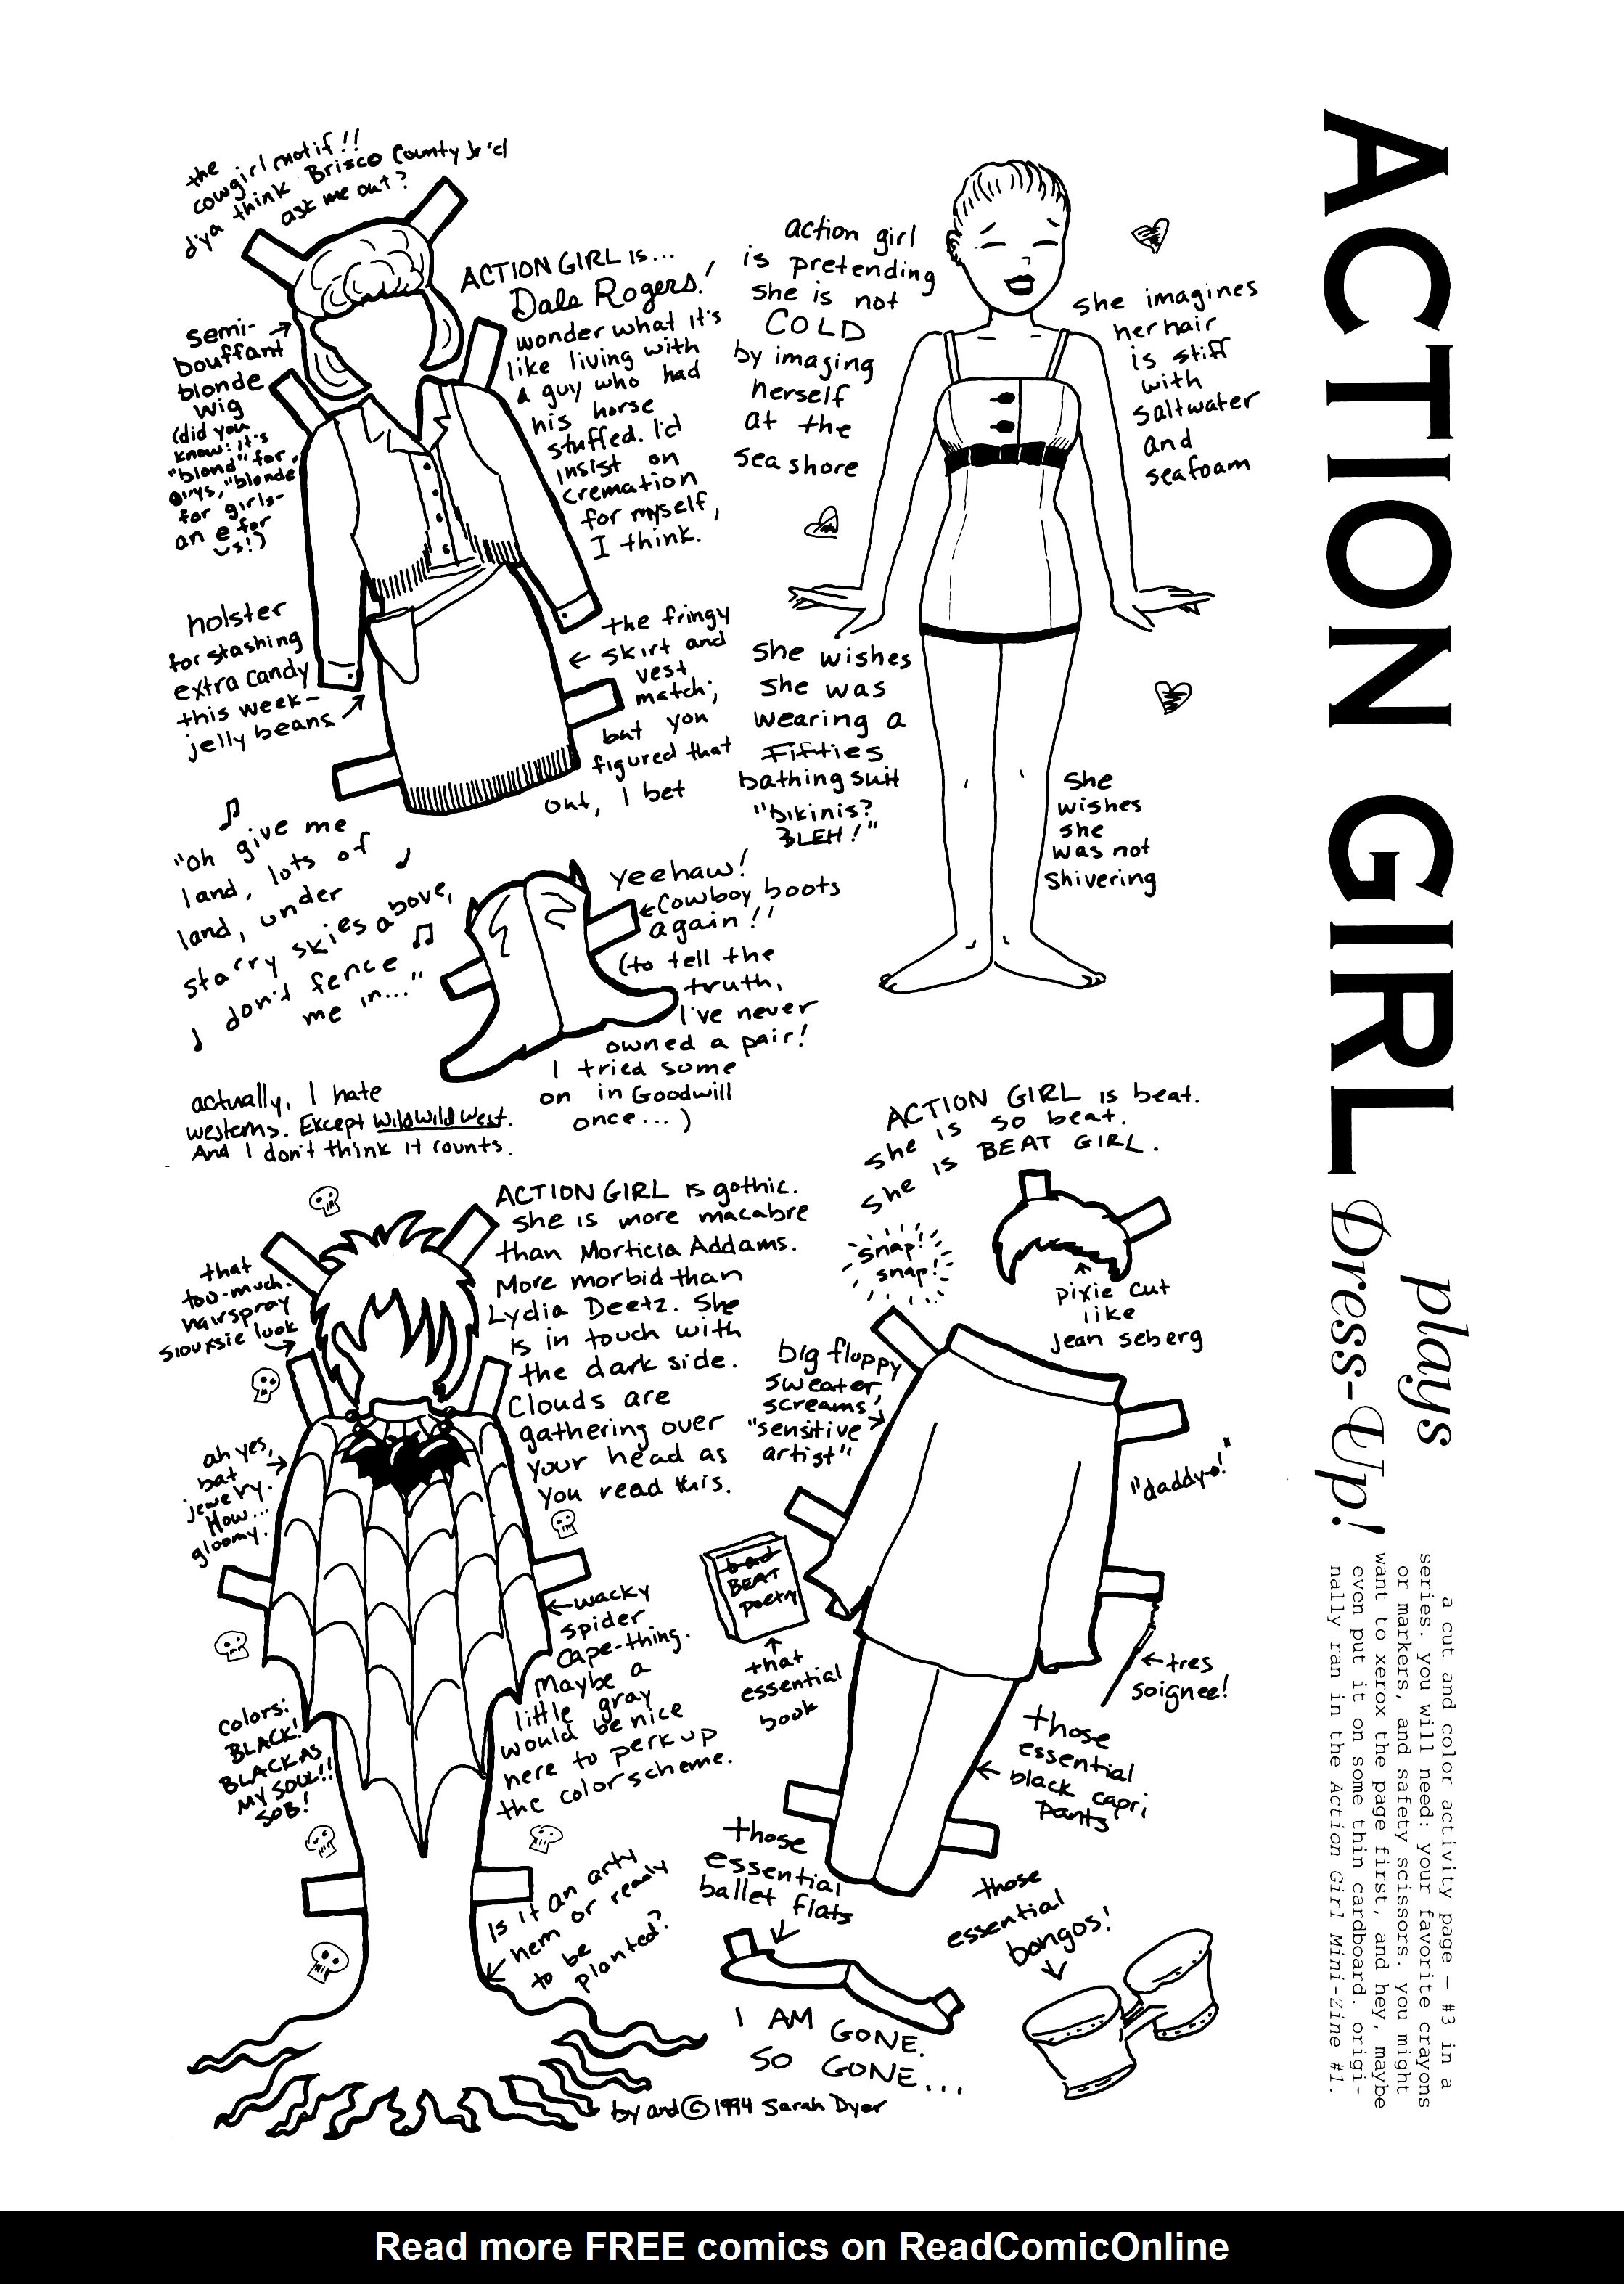 ACTION GIRL
plays
Dress-Up!
a cut and color activity page – #3 in a
series. you will need: your favorite crayons
or markers, and safety scissors. you might
want to xerox the page first, and hey, maybe
even put it on some thin cardboard. origi-
nally ran in the Action Girl Mini-Zine #1.
the
cowgirl motif!!
d'ya think Brisco County Jr'd
ask me out?
ACTION GIRL is...
Dale Rogers!
wonder what it's
like living with
a guy who had
his horse
stuffed. I'd
insist on
cremation
for myself,
I think.
semi-
bouffant
blonde
wig
(did you
know: it's
"blond" for
guys, "blonde"
for girls-
an e for
us!)
holster
for stashing
extra candy
this week-
jelly beans
the fringy
skirt and
vest
match;
but you
figured that
out, I bet
"oh give me
land, lots of
land, under
starry skies above,
don't fence
me in..."
yeehaw!
cowboy boots
again!!
(to tell the
truth,
I've never
owned a pair!
I tried some
on in Goodwill
once...)
actually, I hate
westerns. Except Wild Wild West.
And I don't think it counts.
action girl
is pretending
she is not
COLD
by imaging
herself
at the
sea shore
she imagines
her hair
is stiff
with
saltwater
and
seafoam
she wishes
she was
wearing a
Fifties
bathing suit
"bikinis?
BLEH!"
she
wishes
she
was not
shivering
ACTION GIRL is gothic.
she is more macabre
than Morticia Addams.
More morbid than
Lydia Deetz. She
is in touch with
the dark side.
Clouds are
gathering over
your head as
you read this.
that
too-much-
hairspray
siouxsie look
ah yes,
bat
jewelry.
How...
gloomy.
wacky
spider
cape-thing.
Maybe a
little gray
would be nice
here to perk up
the color scheme.
colors:
BLACK!
BLACK AS
MY SOUL!!
SOB!
Is it an arty
hem or ready
to be
planted?
ACTION GIRL is beat.
she is so beat.
she is BEAT GIRL.
snap!
snap!
pixie cut
like
jean seberg
big floppy
sweater,
screams
"sensitive
artist"
"daddy-o!"
bad
BEAT
poetry
that
essential
book
tres
soignee!
those
essential
black capri
pants
those
essential
ballet flats
those
essential
bongos!
I AM GONE.
SO GONE...
by and © 1994 Sarah Dyer
Read more FREE comics on ReadComicOnline